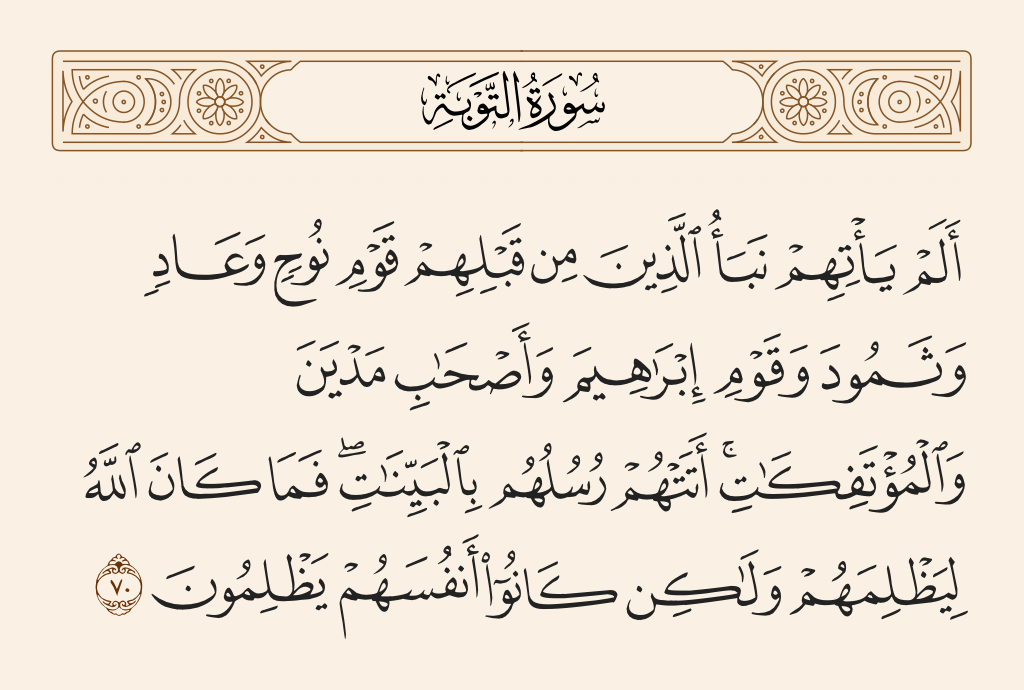 سُورَةُ التَّوْبَةِ
أَلَمْ يَأْتِهِمْ نَبَأُ ٱلَّذِينَ مِن قَبْلِهِمْ قَوْمِ نُوحٍ وَعَادٍ
وَثَمُودَ وَقَوْمِ إِبْرَٰهِيمَ وَأَصْحَٰبِ مَدْيَنَ
وَٱلْمُؤْتَفِكَٰتِ ۚ أَتَتْهُمْ رُسُلُهُم بِٱلْبَيِّنَٰتِ ۖ فَمَا كَانَ ٱللَّهُ
لِيَظْلِمَهُمْ وَلَٰكِن كَانُوٓا۟ أَنفُسَهُمْ يَظْلِمُونَ ٧٠